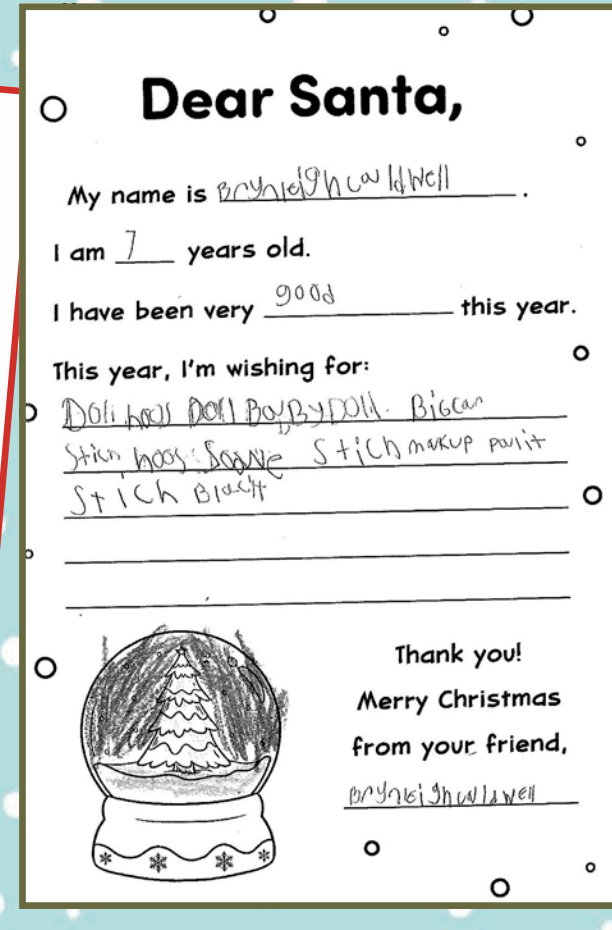 Dear Santa,
My name is Brynleigh caldwell.
I am 7 years old.
I have been very good this year.
This year, I'm wishing for:
Doll hoos Doll BayBy Doll. Big car
Stich hoos Stich makup
Stich
Thank you!
Merry Christmas
from your friend,
Brynleigh caldwell